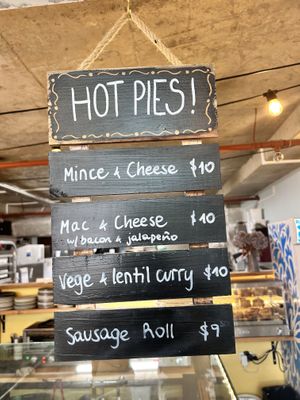 HOT PIES!
Mince & Cheese $10
Mac & Cheese $10
w/ bacon & jalapeño
Vege & lentil curry $10
Sausage Roll $9